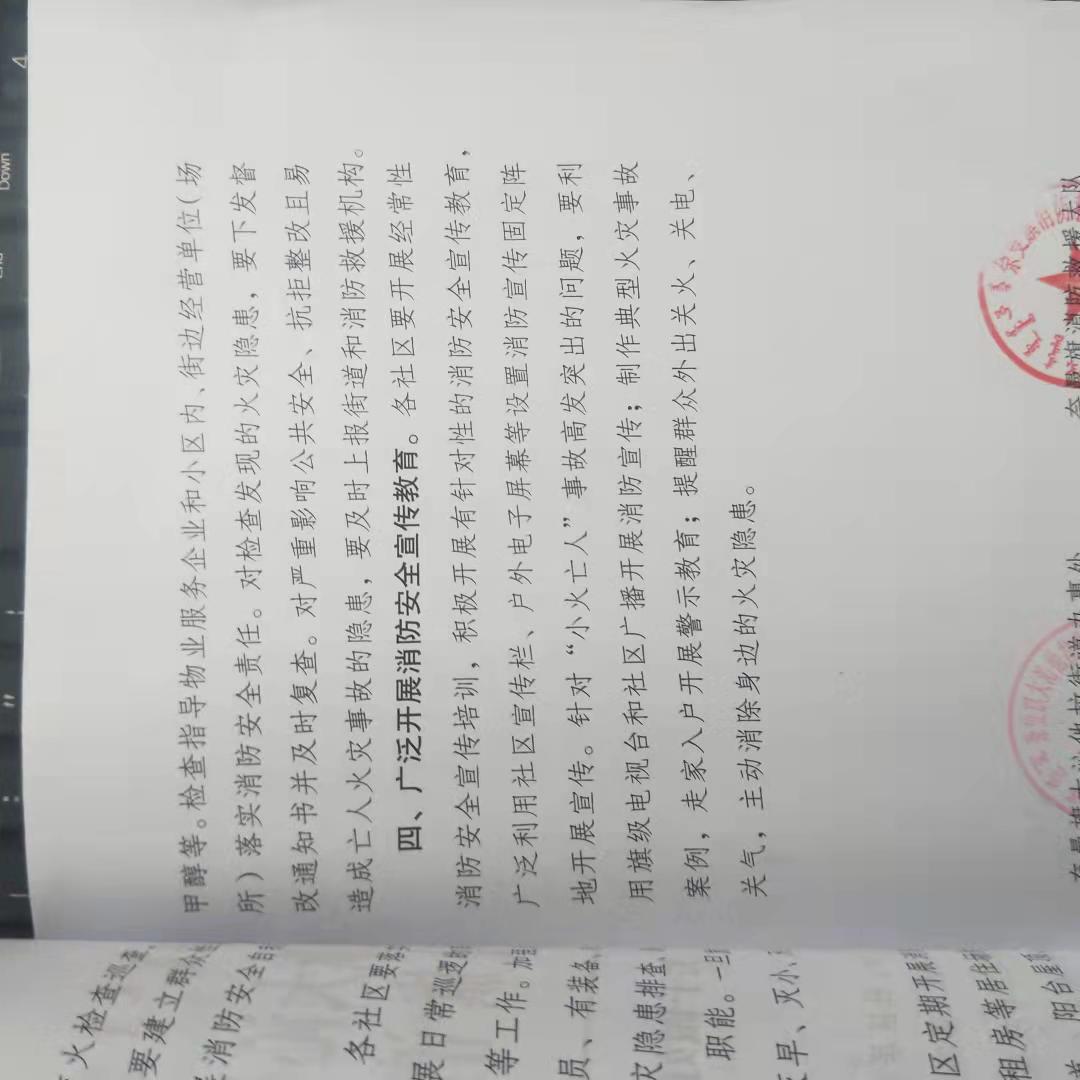 甲醇等。检查指导物业服务企业和小区内、街边经营单位(场
所)落实消防安全责任。对检查发现的火灾隐患，要下发督
改通知书并及时复查。对严重影响公共安全、抗拒整改且易
造成亡人火灾事故的隐患，要及时上报街道和消防救援机构。
四、广泛开展消防安全宣传教育。各社区要开展经常性
消防安全宣传培训，积极开展有针对性的消防安全宣传教育，
广泛利用社区宣传栏、户外电子屏幕等设置消防宣传固定阵
地开展宣传。针对“小火亡人”事故高发突出的问题，要利
用旗级电视台和社区广播开展消防宣传；制作典型火灾事故
案例，走家入户开展警示教育；提醒群众外出关火、关电、
关气，主动消除身边的火灾隐患。
旗消防救援大队
街道办事处
火检查巡查
要建立群众
消防安全
各社区要
展日常巡逻
等工作。
员、有装备
灾隐患排查
职能。一旦
早、灭小、
区定期开展
租房等居住
阳台
Down
4